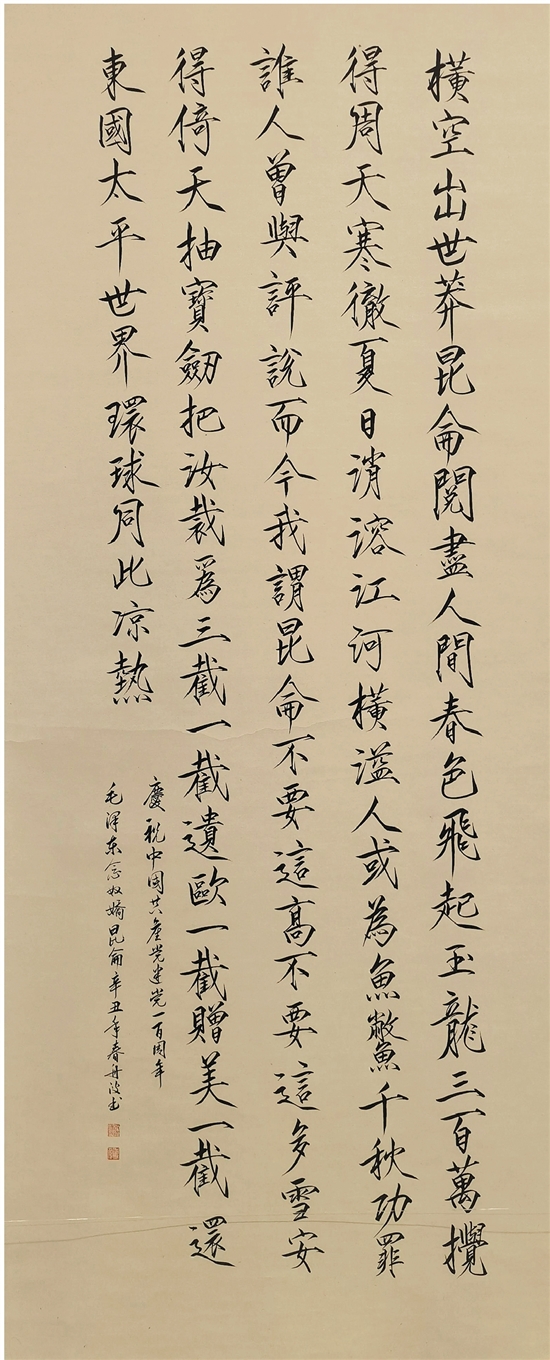 橫空出世莽昆侖閱盡人間春色飛起玉龍三百萬攪
得周天寒徹夏日消溶江河橫溢人或為魚鱉千秋功罪
誰人曾與評說而今我謂昆侖不要這高不要這多雪安
得倚天抽寶劔把汝裁爲三截一截遺歐一截贈美一截還
東國太平世界環球同此涼熱
慶祝中国共产党建党一百周年
毛泽东念奴嬌昆侖辛丑年春丹波书